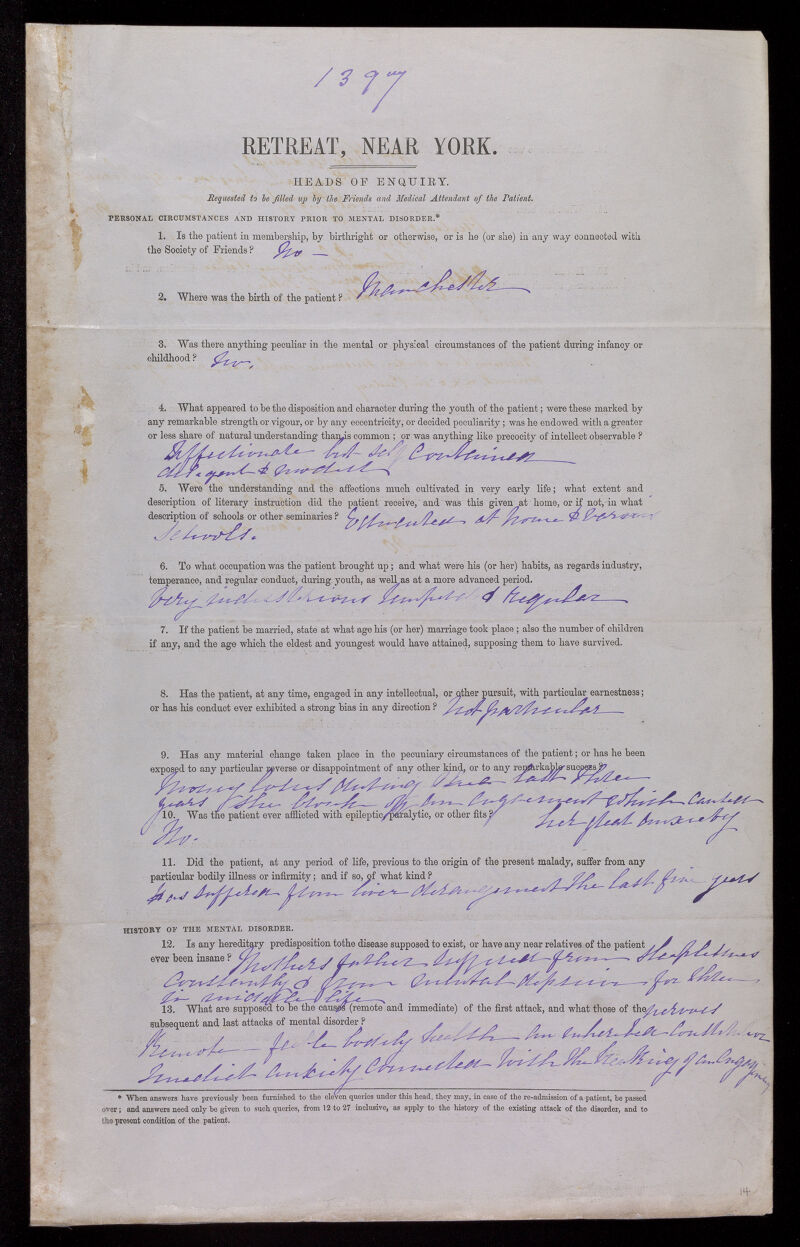 1397
RETREAT, NEAR YORK.
HEADS OF ENQUIRY.
Requested to be filled up by the Friends and Medical Attendant of the Patient.
PERSONAL CIRCUMSTANCES AND HISTORY PRIOR TO MENTAL DISORDER.*
1. Is the patient in membership, by birthright or otherwise, or is he (or she) in any way connected with
the Society of Friends? No —
2. Where was the birth of the patient? Manchester
3. Was there anything peculiar in the mental or physical circumstances of the patient during infancy or
childhood? No.
4. What appeared to be the disposition and character during the youth of the patient; were these marked by
any remarkable strength or vigour, or by any eccentricity, or decided peculiarity; was he endowed with a greater
or less share of natural understanding than is common; or was anything like precocity of intellect observable?
Affectionate but self contained
diligent & modest
5. Were the understanding and the affections much cultivated in very early life; what extent and
description of literary instruction did the patient receive, and was this given at home, or if not, in what
description of schools or other seminaries? Educated at home &
Schools.
6. To what occupation was the patient brought up; and what were his (or her) habits, as regards industry,
temperance, and regular conduct, during youth, as well as at a more advanced period.
Very industerious & regular
7. If the patient be married, state at what age his (or her) marriage took place; also the number of children
if any, and the age which the eldest and youngest would have attained, supposing them to have survived.
8. Has the patient, at any time, engaged in any intellectual, or other pursuit, with particular earnestness;
or has his conduct ever exhibited a strong bias in any direction? Not particular
9. Has any material change taken place in the pecuniary circumstances of the patient; or has he been
exposed to any particular reverse or disappointment of any other kind, or to any remarkable success?
Money losses during the last three
years & the break off an engagement which caused
her great anxiety
10. Was the patient ever afflicted with epileptic, paralytic, or other fits?
No.
11. Did the patient, at any period of life, previous to the origin of the present malady, suffer from any
particular bodily illness or infirmity; and if so, of what kind?
Has suffered from liver derangement the last five years
HISTORY OF THE MENTAL DISORDER.
12. Is any hereditary predisposition to the disease supposed to exist, or have any near relatives of the patient
ever been insane? Mothers father suffered from Sleeplesness
constantly & from mental for three
in middle life
13. What are supposed to be the causes (remote and immediate) of the first attack, and what those of the
subsequent and last attacks of mental disorder?
Remote – feeble bodily health an inherited nervous
anxiety connected with the breaking of an engagement
* When answers have previously been furnished to the eleven queries under this head, they may, in case of the re-admission of a patient, be passed
over; and answers need only be given to such queries, from 12 to 27 inclusive, as apply to the history of the existing attack of the disorder, and to
the present condition of the patient.
14